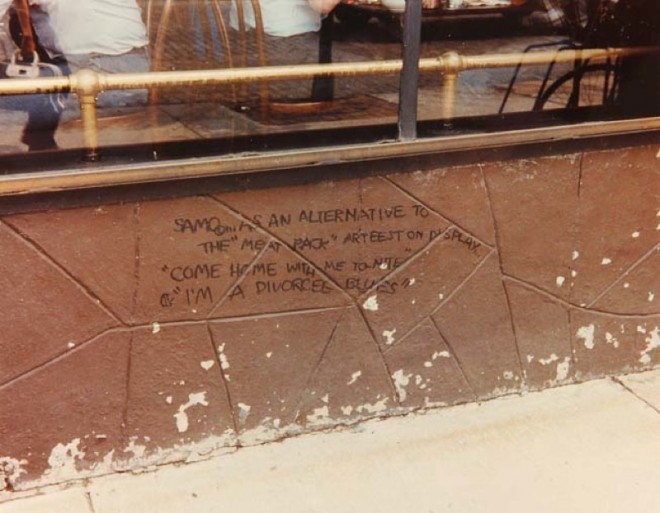 SAMO©... AS AN ALTERNATIVE TO
THE "MEAT RACK" ARTEEST ON DISPLAY
"COME HOME WITH ME TO-NITE"
© "I'M A DIVORCEE BLUES"